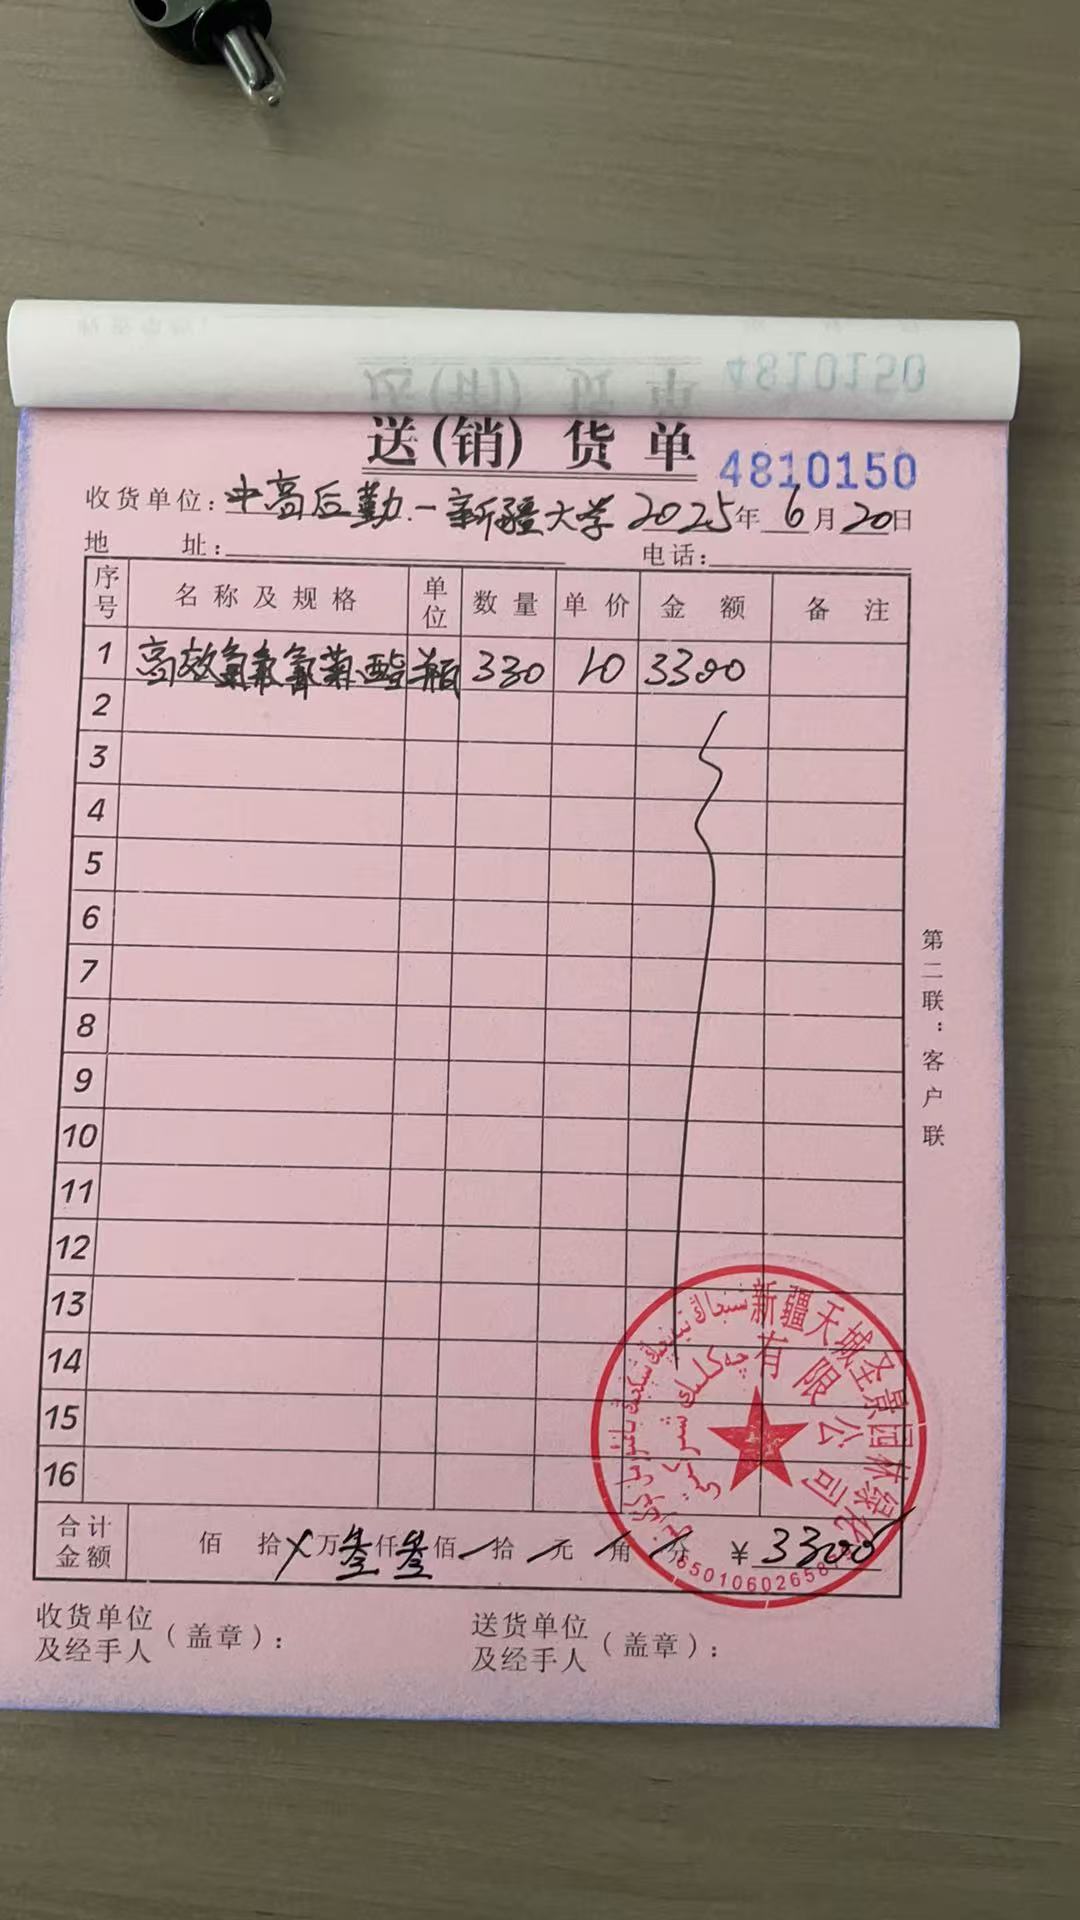 送(销)货单
4810150
收货单位：中高后勤.一新疆大学 2025年 6月20日
地 址： 电话：
序号 名称及规格 单位 数量 单价 金额 备注
1 高效氯氟氰菊酯 瓶 330 10 3300
2
3
4
5
6
7
8
9
10
11
12
13
14
15
16
第二联：客户联
新疆天城圣景园林绿化
有限公司
合计金额 佰 拾 万 叁仟 叁佰 拾 元 角 分 ¥ 3300
收货单位及经手人（盖章）： 送货单位及经手人（盖章）：